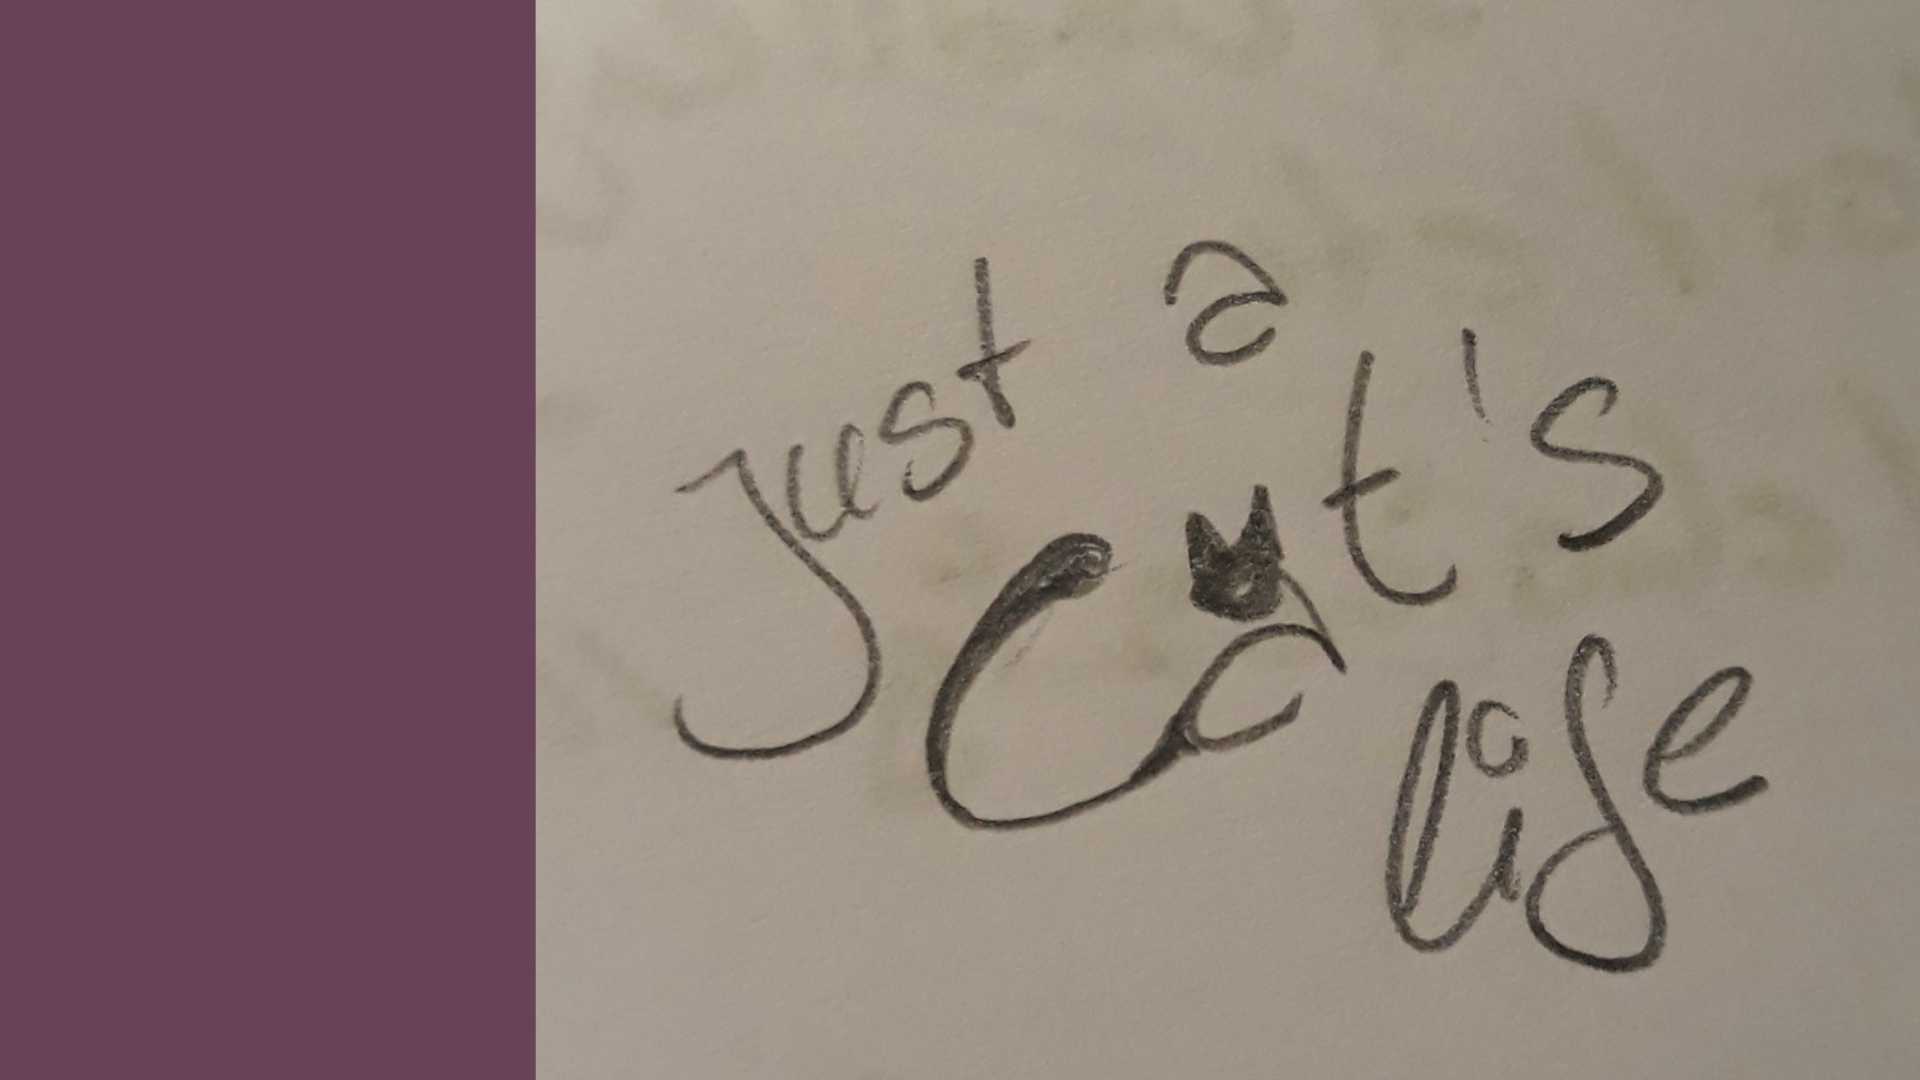 Just a
Cat's
life